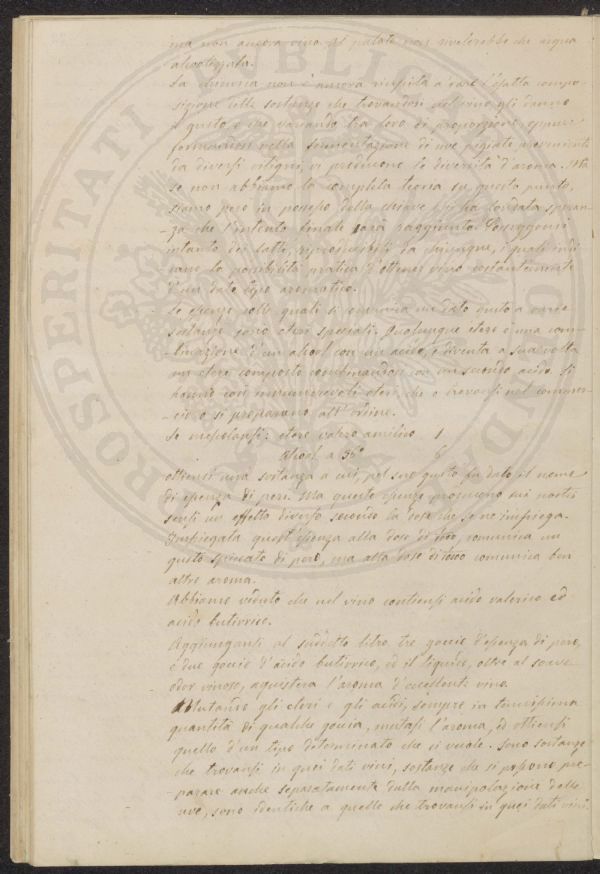 ma non ancora vino. Il palato non rivelerebbe che acqua
alcoolizzata.
La chimica non è ancora riuscita a dare l'esatta compo-
sizione delle sostanze che trovandosi nel vino gli danno
il gusto, e che variando tra loro di proporzione, oppure
formandosi nella fermentazione di uve pigiate provenienti
da diversi vitigni, vi producono le diversità d'aroma. Ma
se non abbiamo la completa teoria su questo punto,
siamo però in possesso della chiave che ha fondata speran-
-za che l'intento finale sarà raggiunto. Posseggonsi
intanto dei fatti, riproducibili da chiunque, i quali indi-
cano la possibilità pratica d'ottener vino costantemente
d'un dato tipo aromatico.
Le essenze colle quali si comunica un dato gusto a varie
sostanze sono eteri speciali. Qualunque etere è una com-
-binazione d'un alcool con un acido, e diventa a sua volta
un etere composto combinandosi con un secondo acido. Si
hanno così innumerevoli eteri, che o trovansi nel commer-
-cio o si preparano all'ordine.
Se mescolansi: etere valero amilico 1
Alcool a 36° 6
ottiensi una sostanza a cui, pel suo gusto fu dato il nome
di essenza di pere. Ma queste essenze producono sui nostri
sensi un effetto diverso secondo la dose che se ne impiega.
Impiegata quest'essenza alla dose di comunica un
gusto spiccato di pere, ma alla dose di comunica ben
altro aroma.
Abbiamo veduto che nel vino contiensi acido valerico ed
acido butirrico.
Aggiungansi al suddetto litro tre goccie d'essenza di pere,
e due goccie d'acido butirrico, ed il liquido, oltre al soave
odor vinoso, aquisterà l'aroma d'eccellente vino.
Mutando gli eteri e gli acidi, sempre in tenuissima
quantità di qualche goccia, mutasi l'aroma, ed ottiensi
quello d'un tipo determinato che si vuole. Sono sostanze
che trovansi in quei dati vini, sostanze che si possono pre-
-parare anche separatamente dalla manipolazione delle
uve, sono identiche a quelle che trovansi in quei dati vini.